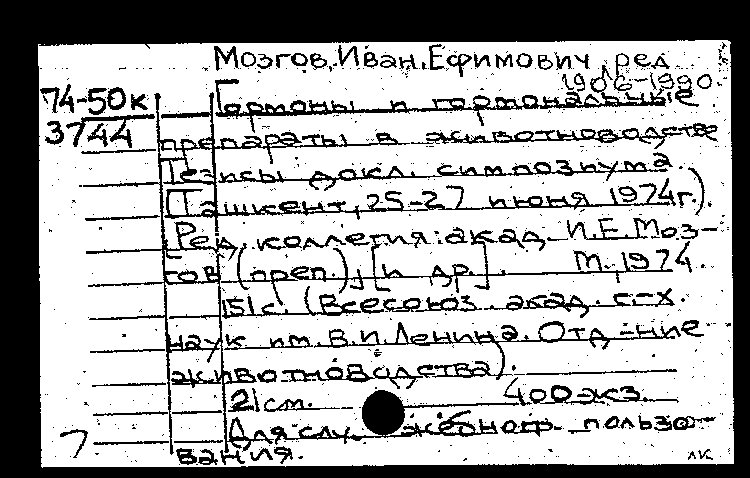 Мозгов, Иван Ефимович, ред
1906-1990.
74-50к Гормоны и гормональные
3744 препараты в животноводстве
Тезисы докл. симпозиума.
(Ташкент, 25-27 июня 1974г.).
[Ред. коллегия: акад. И.Е. Моз-
гов (преп.), [и др.]. М., 1974.
151с. (Всесоюз. акад. с.-х.
наук им. В.И. Ленина. Отд-ние
животноводства).
21см. 400экз.
Для служебного пользо-
вания.